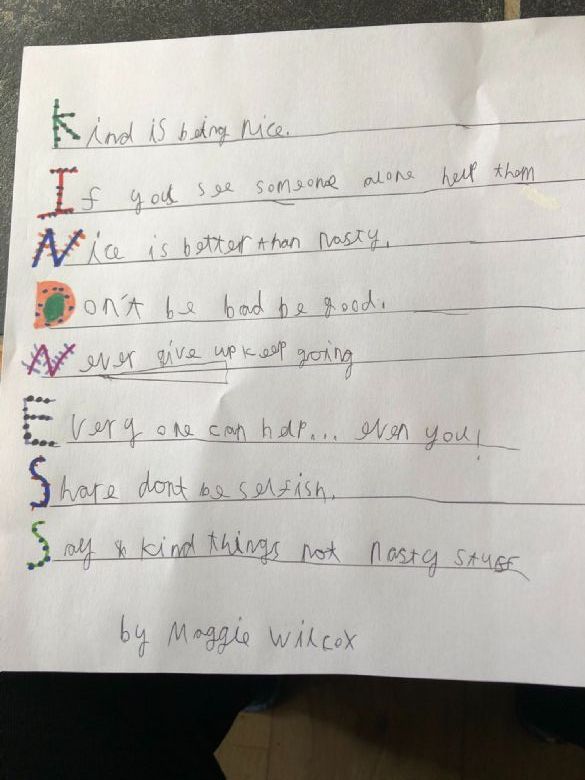 Kind is being nice.
If you see someone alone help them
Nice is better than nasty.
Don't be bad be good.
Never give up keep going
Every one can help... even you!
Share dont be selfish.
Say kind things not nasty stuff
by Maggie Wilcox